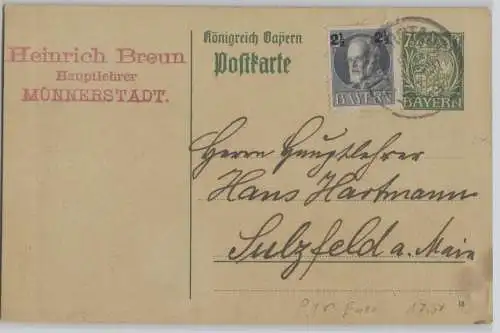 Heinrich Breun
Hauptlehrer
MÜNNERSTADT.
Königreich Bayern
Postkarte
2½ 2½
BAYERN
BAYERN
Herrn Hauptlehrer
Hans Hartmann
Sulzfeld a. Main